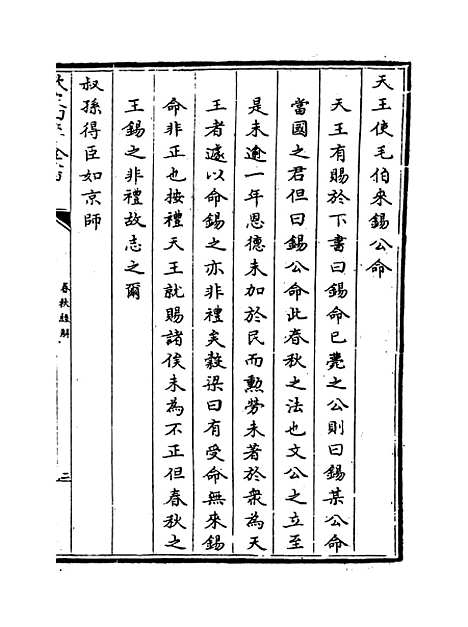 天王使毛伯來錫公命
天王有賜於下書曰錫命已薨之公則曰錫某公命
當國之君但曰錫公命此春秋之法也文公之立至
是未逾一年恩德未加於民而勲勞未著於衆為天
王者遽以命錫之亦非禮矣穀梁曰有受命無來錫
命非正也按禮天王就賜諸侯未為不正但春秋之
王錫之非禮故志之爾
叔孫得臣如京師
春秋經解
三